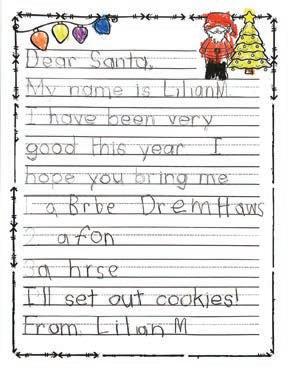 Dear Santa,
My name is Lilian M
I have been very
good this year I
hope you bring me
1 a Brbe DremHaws
2 a fon
3 a hrse
I'll set out cookies!
From, Lilian M